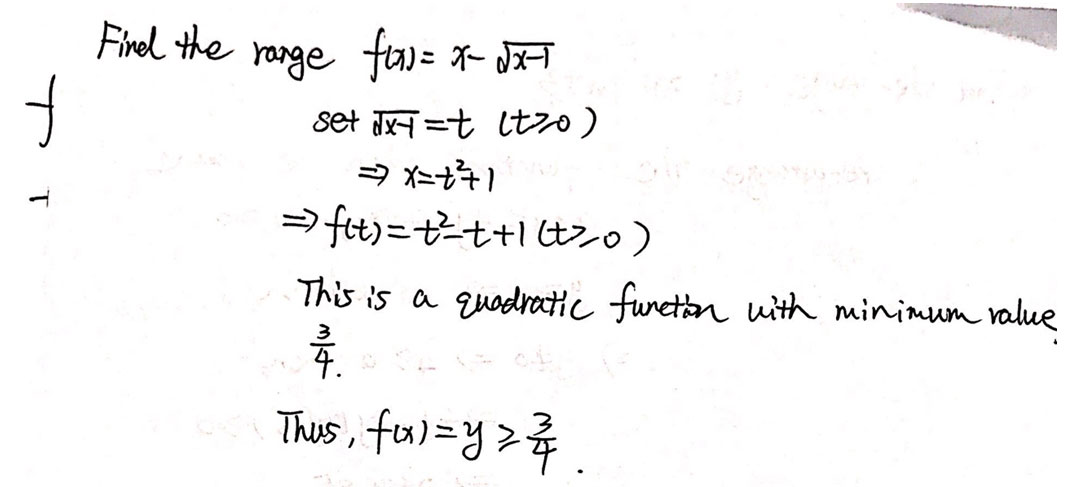 Find the range f(x) = x - √x-1
set √x-1 = t (t≥0)
⇒ x = t²+1
⇒ f(t) = t²-t+1 (t≥0)
This is a quadratic function with minimum value
3/4.
Thus, f(x) = y ≥ 3/4.